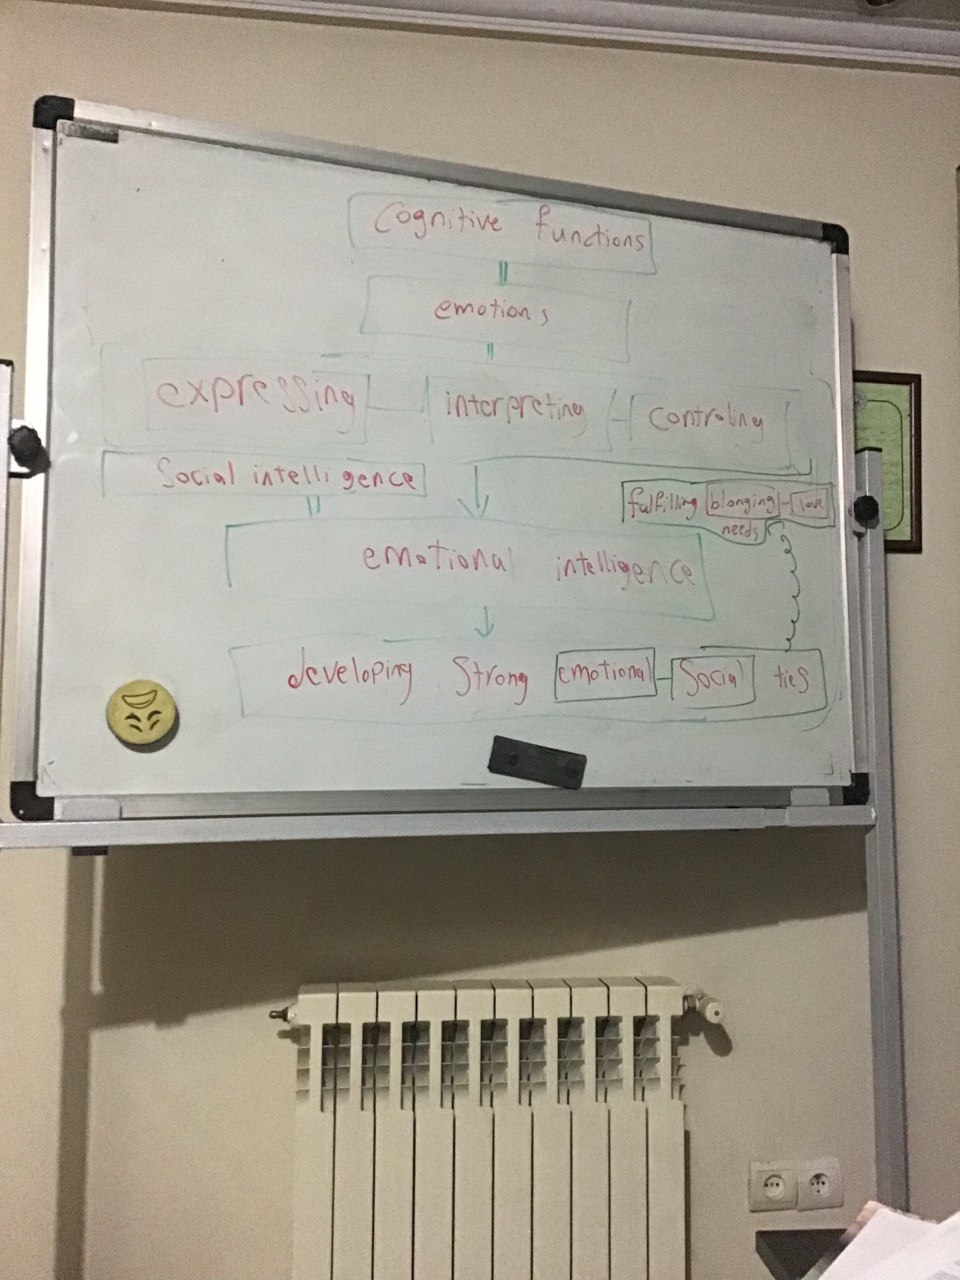 Cognitive functions
emotions
expressing interpreting controling
Social intelligence
fulfilling blonging love
needs
emotional intelligence
developing Strong emotional Social ties